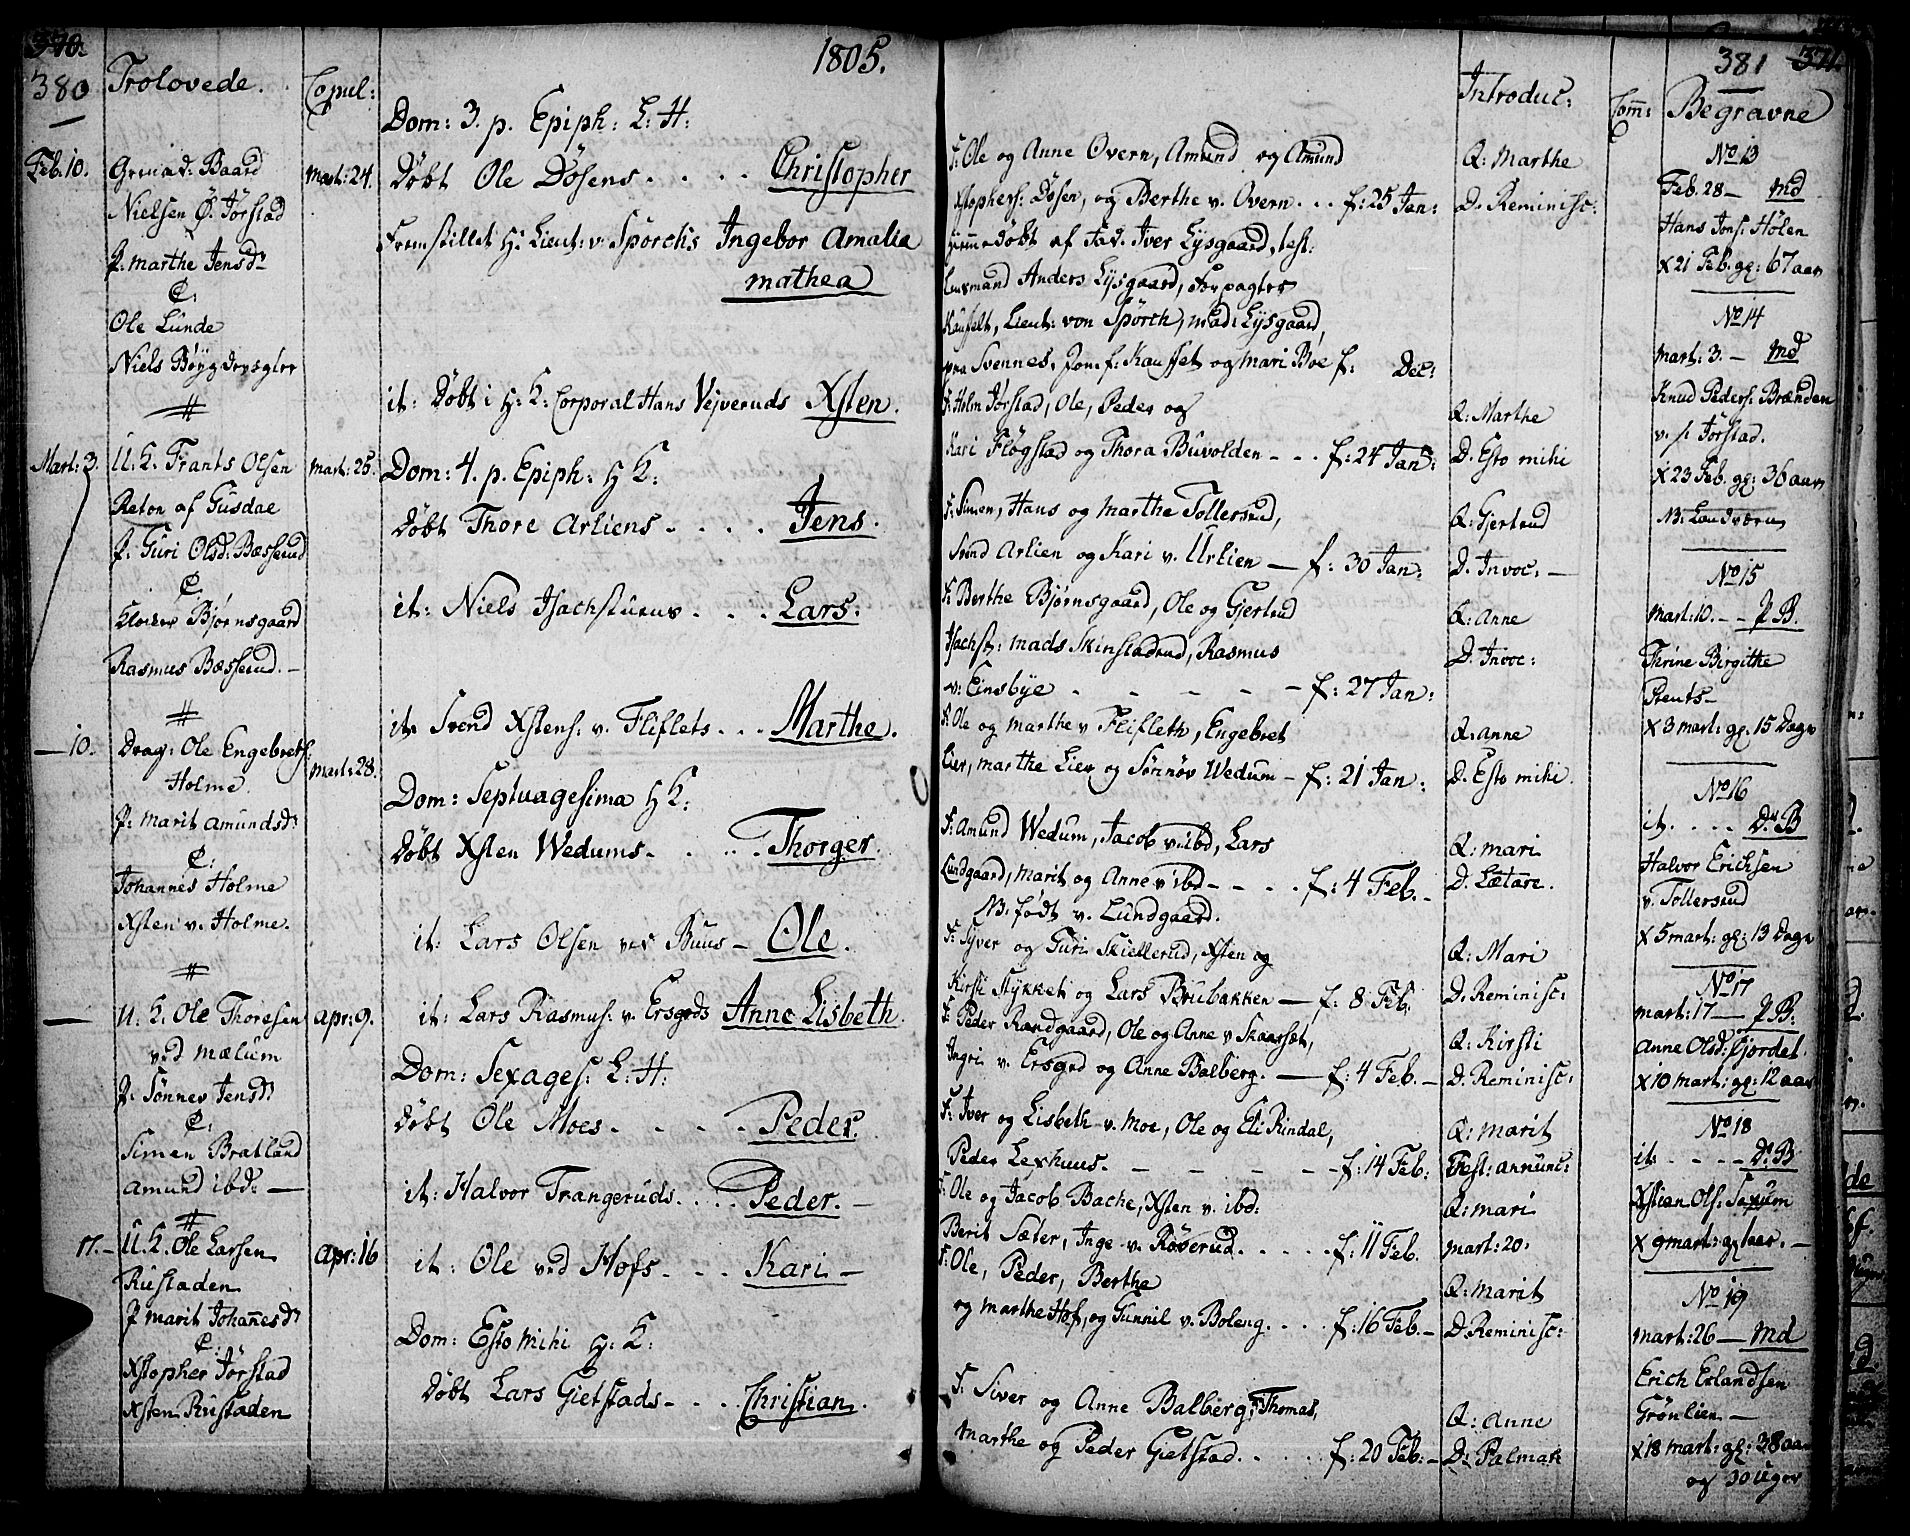 370.
380
Trolovede.
Copul:
1805.
Feb. 10.
Grenad: Baard
Nielsen Ø. Jørstad
P. Marthe Jensdr
C:
Ole Lunde
Niels Bøygdevogter
Mart: 24.
Mart: 3.
U. K. Frants Olsen
Reton af Gusdae
P. Guri Olsd: Bæsserud
C:
Klocker Bjørnsgaard
Rasmus Bæsserud.
Mart: 25.
10.
Drag: Ole Engebrets:
Holme.
P: Marit Amundsdr
C:
Johannes Holme
Xsten v. Holme.
Mart: 28.
U. K. Ole Thoresen
ved Mælum
P. Sønnev Jensdr
C:
Simen Bratland
Amund ibd:
Apr: 9.
17.
U. K. Ole Larsen
Rustaden
P Marit Johañesdr
C:
Xstopher Jørstad
Xsten Rustaden
Apr: 16
Dom: 3. p. Epiph: L: H:
Døbt Ole Døsens . . . . Christopher
Fremstillet Hr Lieut: v: Spörchs Ingebor Amalia
Mathea
it: Døbt i H: K: Corporal Hans Vejveruds Xsten.
Dom: 4. p. Epiph: H K:
Døbt Thore Arliens . . . . Jens.
it: Niels Isachstuens . . . Lars.
it: Svend Xstens: v. Fliflets . . . Marthe.
Dom: Septuagesima H K:
Døbt Xsten Wedums . . . Thorger.
it: Lars Olsen ved Buus - Ole.
it: Lars Rasmus: v. Ersgrds Anne Lisbeth.
Dom: Sexages: L: H:
Døbt Ole Moes . . . . Peder.
it: Halvor Trangeruds . . . Peder.
it: Ole ved Hofs . . . Kari
Dom: Esto mihi H: K:
Døbt Lars Gietstads . . . Christian.
381 371.
Introduc:
Com̃:
Begravne
F: Ole og Anne Overn, Amund og Amund
Xstophers: Døsen, og Berthe v. Overn . . . f: 25 Jan:
hjemedøbt af Fad. Iver Lysgaard, test:
Lensmand Anders Lysgaard, Forpagter
Kauffelt, Lieut: von Spörch, Mad: Lysgaard,
Svennes, Jom. f: Kauffet og Mari Boe f: Dec:
F: Holm Jørstad, Ole, Peder og
Kari Fløgstad og Thora Buvolden - - . f: 24 Jan:
F: Simen, Hans og Marthe Tollersrud,
Svend Arlien og Kari v. Urlien — f: 30 Jan:
F: Berthe Bjørnsgaard, Ole og Gjertrud
Isachst: Mads Skinstadrud, Rasmus
v: Einsbye - - - - - f: 27 Jan:
F: Ole og Marthe v Flifleth, Engebret
Lier, Marthe Lier og Sønnøv Wedum - f: 21 Jan:
F: Amund Wedum, Jacob v: ibd, Lars
Lundgaard, Marit og Anne v ibd - - - . f: 4 Feb.
NB. født v. Lundgaard.
F: Syver og Guri Skiellerud, Xsten og
Kirsti Stykket og Lars Brubakken — f: 8 Feb:
F: Peder Randgaard, Ole og Anne v Skaarset,
Ingri v. Ersgrd og Anne Balberg. — f: 4 Feb.
F: Iver og Lisbeth v. Moe, Ole og Eli Rindal,
Peder Lexhuus. - - - - f: 14 Feb:
F: Ole og Jacob Bache, Xsten v. ibd:
Berit Sæter, Inge v. Røverud . . . . . f: 11 Feb.
F: Ole, Peder, Berthe
og Marthe Hof, og Gunnil v. Boleng . . . . f: 16 Feb.
F: Siver og Anne Balberg, Thomas,
Marthe og Peder Gietstad . . . . f: 20 Feb:
Q: Marthe
D. Reminisc:
Q: Marthe
D. Esto mihi
Q: Gjertrud
D. Invoc:
Q: Anne
D. Invoc:
Q: Anne
D. Esto mihi.
Q: Mari
D. Lætare.
Q: Mari
D. Reminisc:
Q: Kirsti
D. Reminisc:
Q: Marit
Fest: Annunc:
Q: Mari
Mart: 20:
Q: Marit
D. Reminisc:
Q: Anne
D: Palmar:
No 13
Feb. 28 — Md
Hans Jons: Holen
X 21 Feb. gl: 67 aar
No 14
Mart: 3. — Md
Knud Peders: Brænden
v. s: Jørstad.
X 23 Feb. gl: 36 aar
NB. Landværn
No 15
Mart: 10. - - P B.
Thrine Birgithe
X 3 Mart: gl: 15 Dage
No 16
it. . . . D. B
Halvor Erichsen
v. Tollersrud
X 5 Mart: gl: 13 Dage
No 17
Mart: 17 — P B.
Anne Olsd: Gjordet.
X 10 Mart: gl: 12 aar
No 18
it: - - - D. B
Xstian Ols: Saxum
X 9 Mart: gl 1 aar.
No 19
Mart: 26 — Md
Erich Erlandsen
Grønlien
X 18 Mart: gl: 38 aar
og 30 Uger